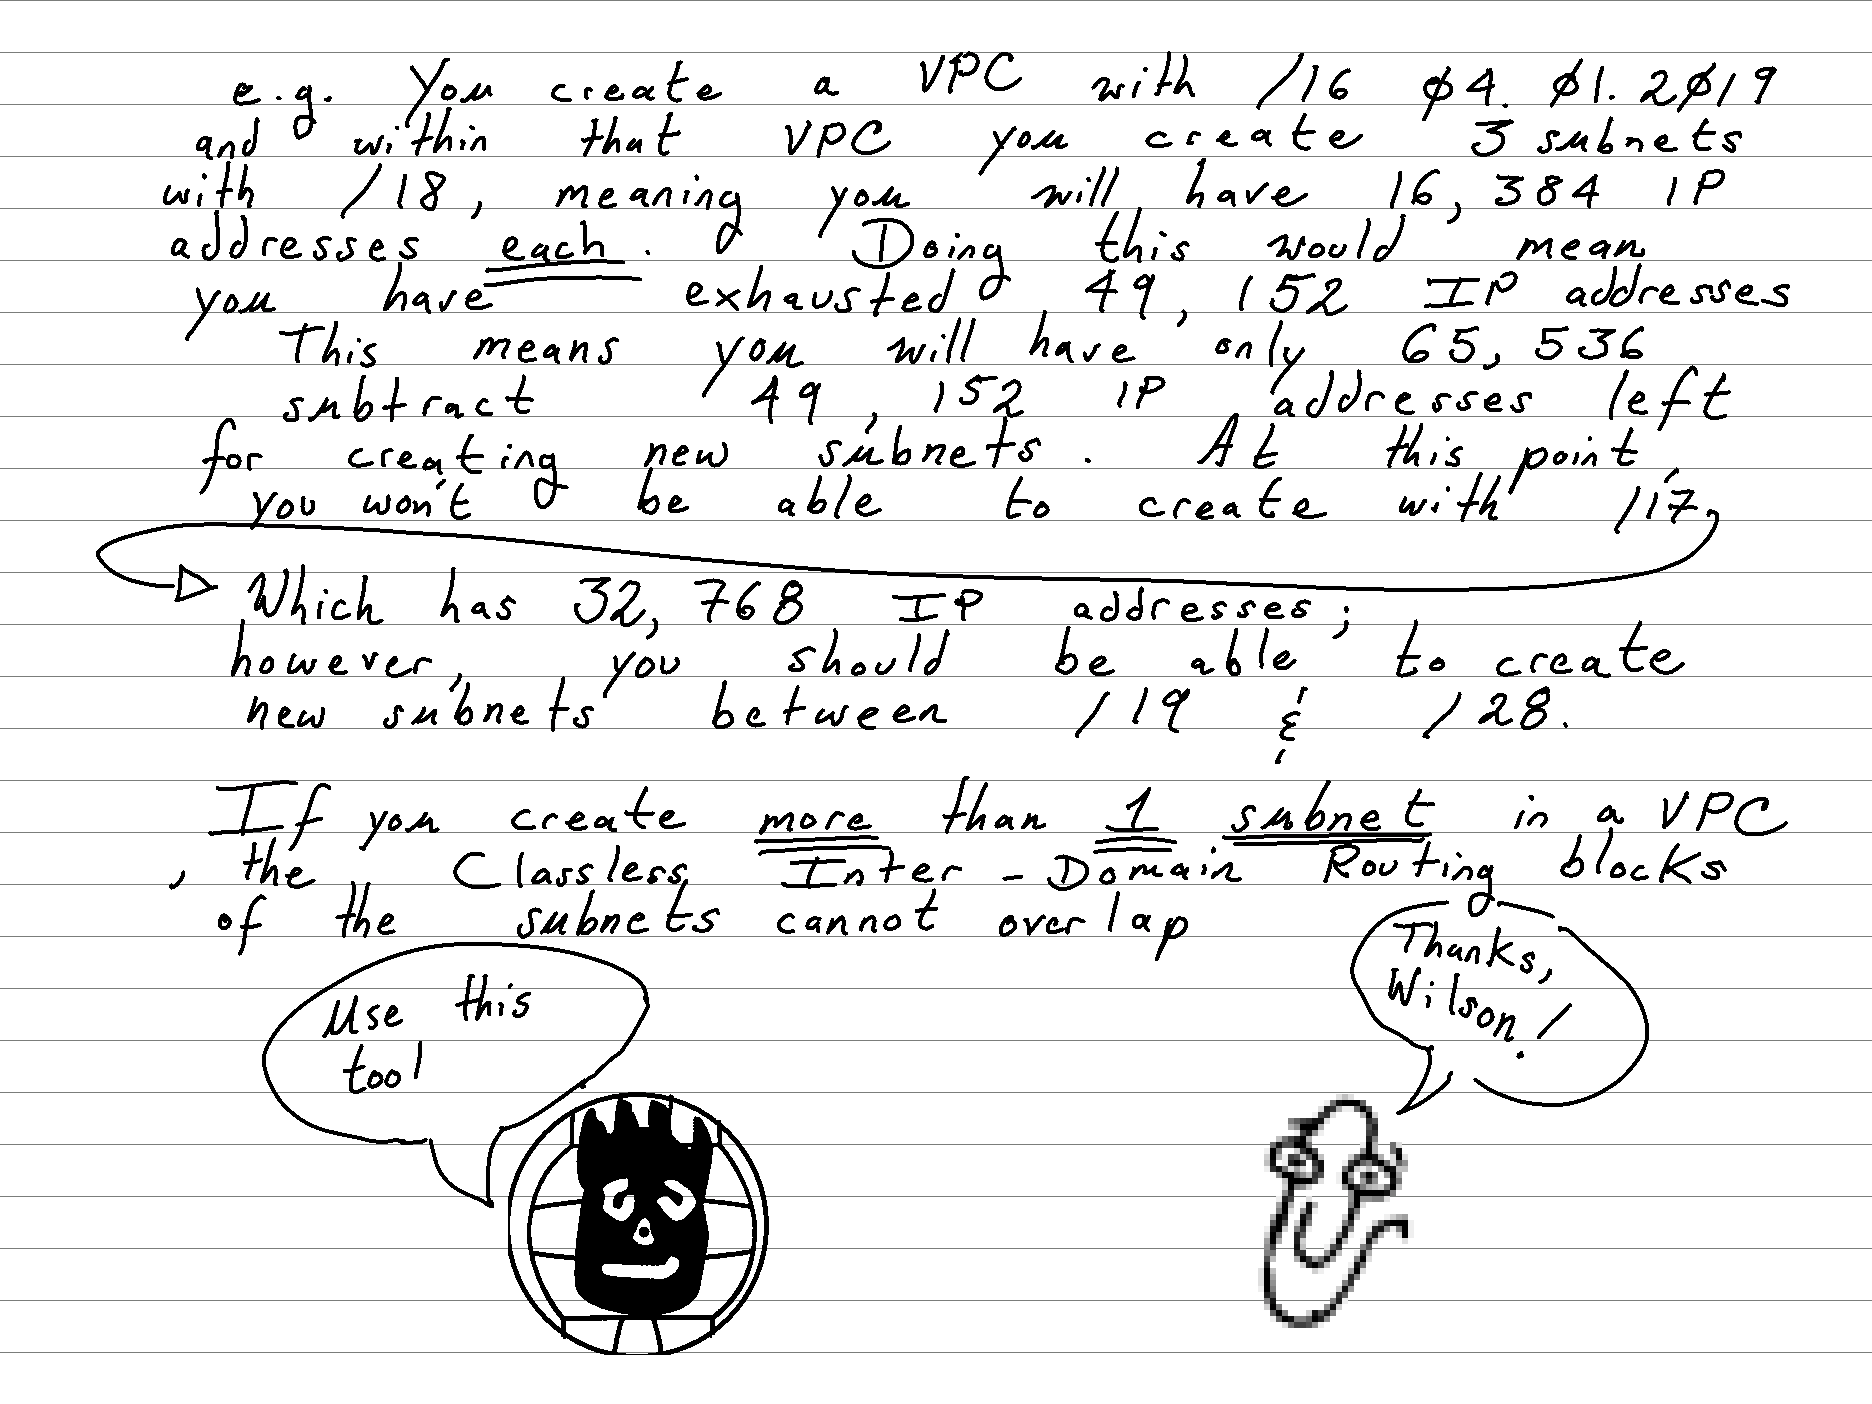 e.g. You create a VPC with /16 04.01.2019
and within that VPC you create 3 subnets
with /18, meaning you will have 16,384 IP
addresses each. Doing this would mean
you have exhausted 49,152 IP addresses
This means you will have only 65,536
subtract 49,152 IP addresses left
for creating new subnets. At this point,
you won't be able to create with /17,
Which has 32,768 IP addresses;
however, you should be able to create
new subnets between /19 & /28.
If you create more than 1 subnet in a VPC
, the Classless Inter-Domain Routing blocks
of the subnets cannot overlap
Use this
tool
Thanks,
Wilson!